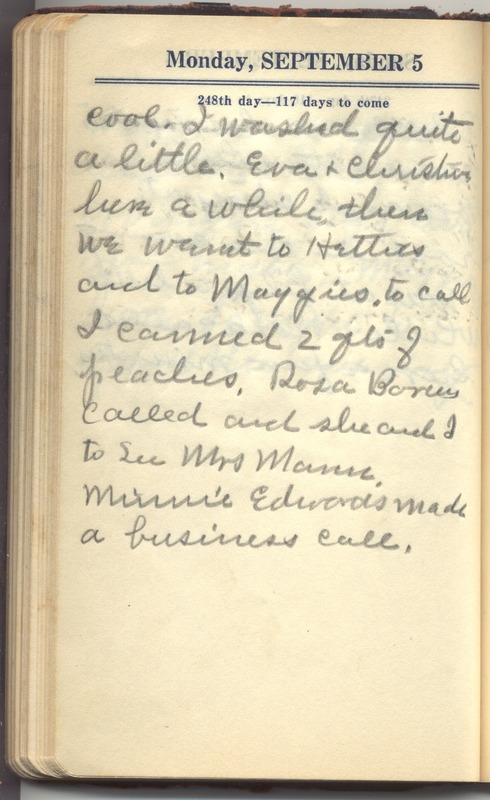 Monday, SEPTEMBER 5
248th day—117 days to come
cool. I washed quite
a little. Eva + Christine
here a while, then
we went to Hetties
and to Maggies, to call
I canned 2 qts of
peaches. Rosa Boren
called and she and I
to see Mrs Mann.
Minnie Edwards made
a business call.